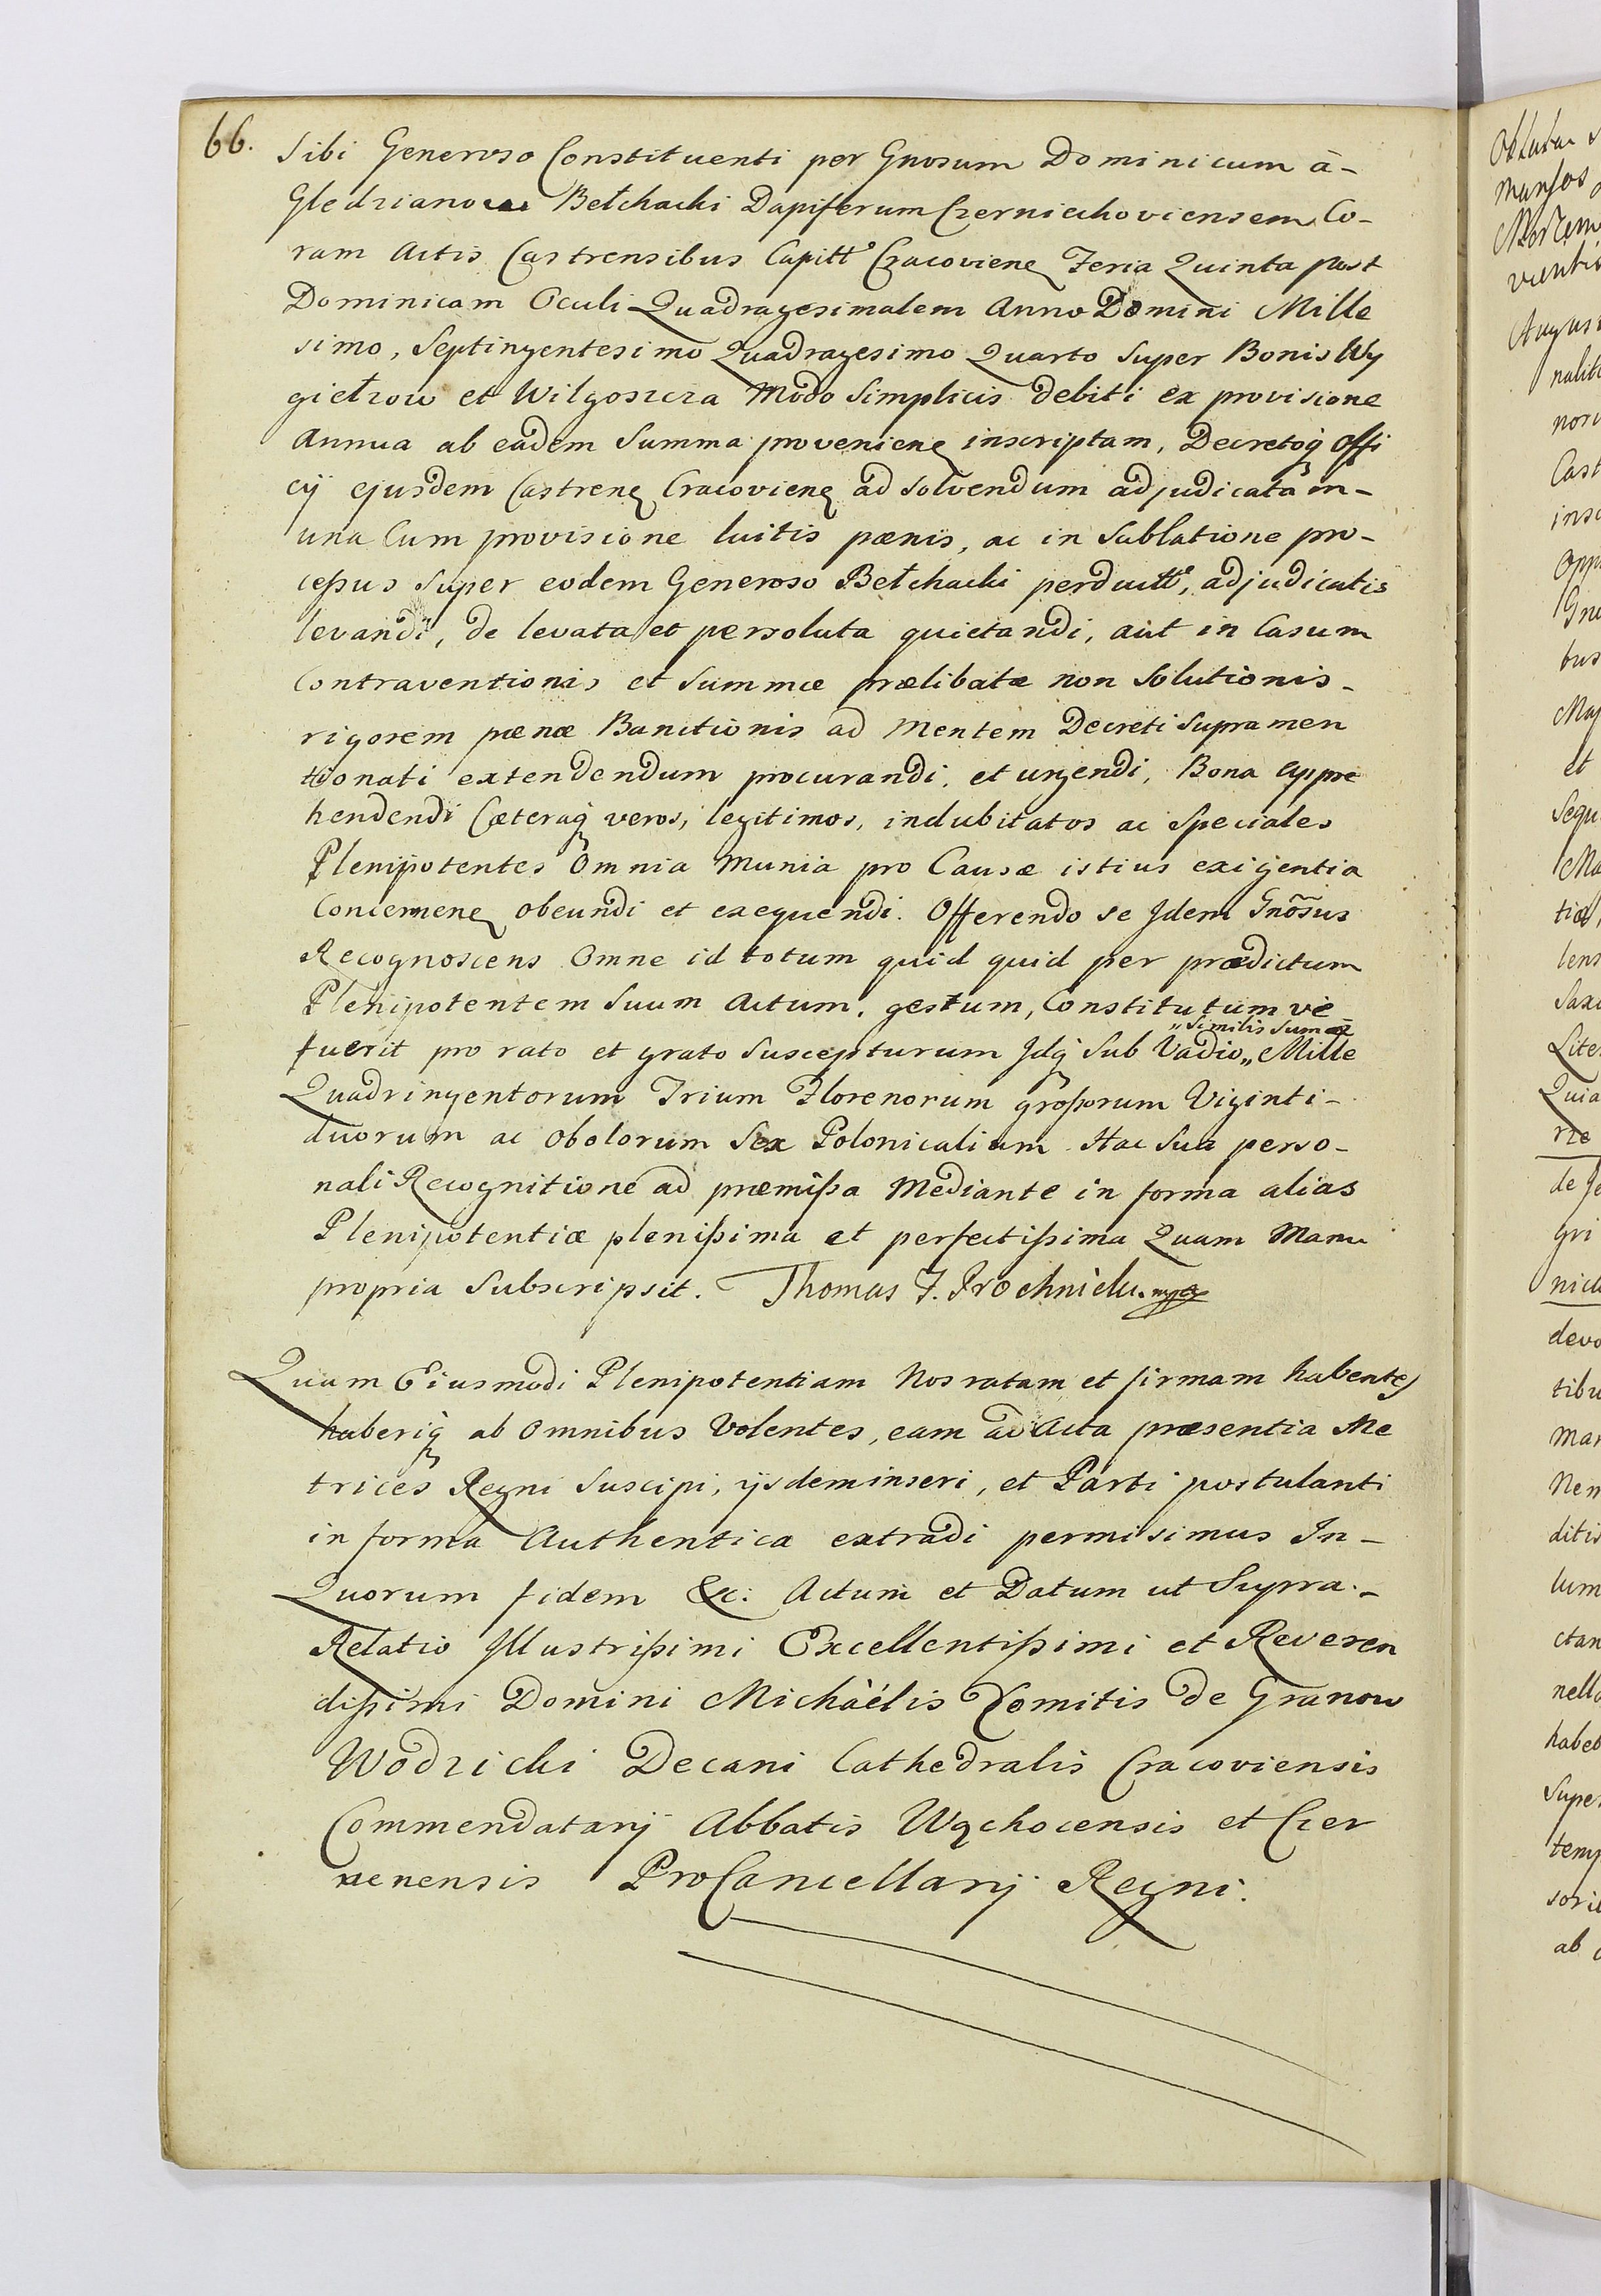 66.
Sibi Generoso Constituenti per Gnosum Dominicum à-
Gledzianow Bełchacki Dapiferum Czerniechoviensem Co-
ram Actis Castrensibus Capitt Cracovienę Feria Quinta post
Dominicam Oculi Quadragesimalem Anno Domini Mille
simo, Septingentesimo Quadragesimo Quarto Super Bonis Wy
giełzow et Wilgoszcza Modo Simplicis debiti ex provisione
Annua ab eadem Summa provenienę inscriptam, Decretoq Offi
cij ejusdem Castrenę Cracovienę ad Solvendum adjudicatam-
una Cum provisione luitis pœnis, ac in Sublatione pro-
cessus Super eodem Generoso Bełchacki perductte, adjudicatis
levandi, de levata et persoluta quietandi, aut in Casum
Contraventionis et Summæ prælibatæ non Solutionis-
rigorem pœnæ Banitionis ad Mentem Decreti Supramen
tionati extendendum procurandi, et urgendi, Bona Appre
hendendi Cæteraq veros, legitimos, indubitatos ac Speciales
Plenipotentes Omnia Munia pro Causæ istius exigentia
Concernenę obeundi et exequendi. Offerendo se Jdem Gnõsus
Recognoscens Omne id totum quid quid per prædictum
Plenipotentem Suum Actum, gestum, Constitutum vè
„Similis Sumæ
fuerit pro rato et grato Suscepturum Jdq Sub Vadio „ Mille
Quadringentorum Trium Florenorum grossorum Viginti-
duorum ac obolorum Sex Polonicalium. Hac Sua perso-
nali Recognitione ad præmissa Mediante in forma alias
Plenipotentiæ plenissima et perfectissima Quam Manu
propria Subscripsit. Thomas J. Prochnicki mpp
Quam Eiusmodi Plenipotentiam Nos ratam et firmam habentes
haberiq ab Omnibus Volentes, eam ad Acta præsentia Me
trices Regni Suscipi, ijsdem inseri, et Parti postulanti
in forma Authentica extradi permisimus In-
Quorum fidem &c: Actum et Datum ut Supra.-
Relatio Jllustrissimi Excellentissimi et Reveren
dissimi Domini Michàélis Comitis de Granow
Wodzicki Decani Cathedralis Cracoviensis
Commendatarij Abbatis Wąchocensis et Czer
venensis ProCancellarij Regni.